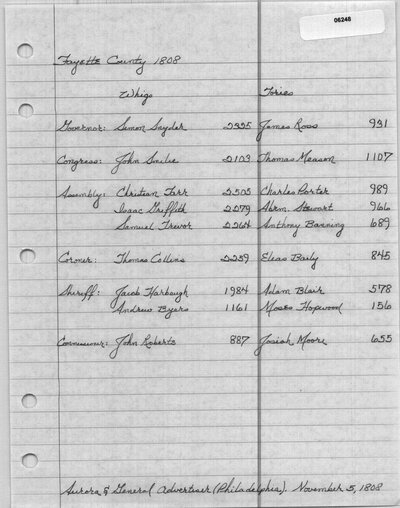 06248
Fayette County 1808
Whigs Tories
Governor: Simon Snyder 2335 James Ross 931
Congress: John Smilie 2103 Thomas Meason 1107
Assembly: Christian Tarr 2505 Charles Porter 989
Isaac Griffith 2279 Abrm. Stewart 966
Samuel Trevor 2264 Anthony Banning 689
Coroner: Thomas Collins 2239 Eleas Baily 845
Sheriff: Jacob Harbaugh 1984 Adam Blair 578
Andrew Byers 1161 Moses Hopwood 156
Commissioner: John Roberts 887 Josiah Moore 655
Aurora & General Advertiser (Philadelphia). November 5, 1808